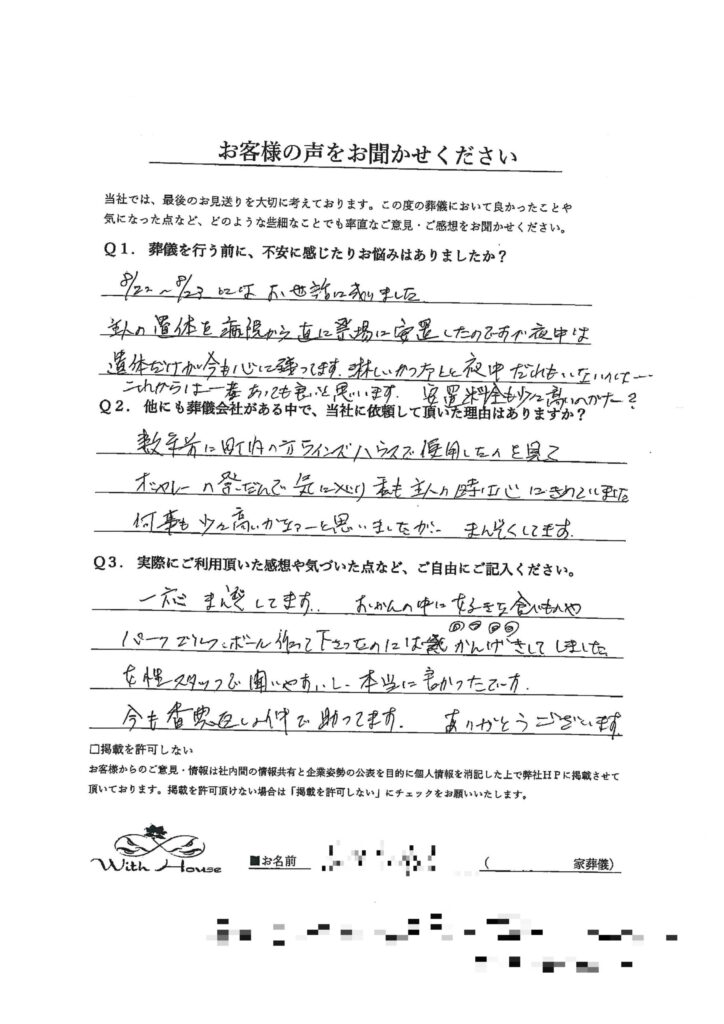 お客様の声をお聞かせください
当社では、最後のお見送りを大切に考えております。この度の葬儀において良かったことや
気になった点など、どのような些細なことでも率直なご意見・ご感想をお聞かせください。
Q1. 葬儀を行う前に、不安に感じたりお悩みはありましたか?
8/22〜8/23 にはお世話になりました
主人の遺体を病院から直に祭場に安置したのですが夜中は
遺体だけが今も心に残ってます. 淋しいかったと夜中だれもいないのは…
これからは一考あっても良いと思います. 安置料金も少々高いのかナー?
Q2. 他にも葬儀会社がある中で、当社に依頼して頂いた理由はありますか?
数年前に町内の方ラインズハウスで使用したのを見て
オシャレーの祭だんで気に入り私も主人の時は心にきめていました
何事も少々高いかなァーと思いましたが… まんぞくしてます.
Q3. 実際にご利用頂いた感想や気づいた点など、ご自由にご記入ください。
一応まんぞくしてます. おかんの中に好きな食べものや
パークゴルフ・ボール作って下さったのには かんげきしてしました
女性スタッフで聞いやすいし、本当に良かったでーす.
今も香典返しの件で助ってます. ありがとうございます.
□掲載を許可しない
お客様からのご意見・情報は社内間の情報共有と企業姿勢の公表を目的に個人情報を消記した上で弊社HPに掲載させて
頂いております。掲載を許可頂けない場合は「掲載を許可しない」にチェックをお願いいたします。
With House
■お名前 ( 家葬儀)